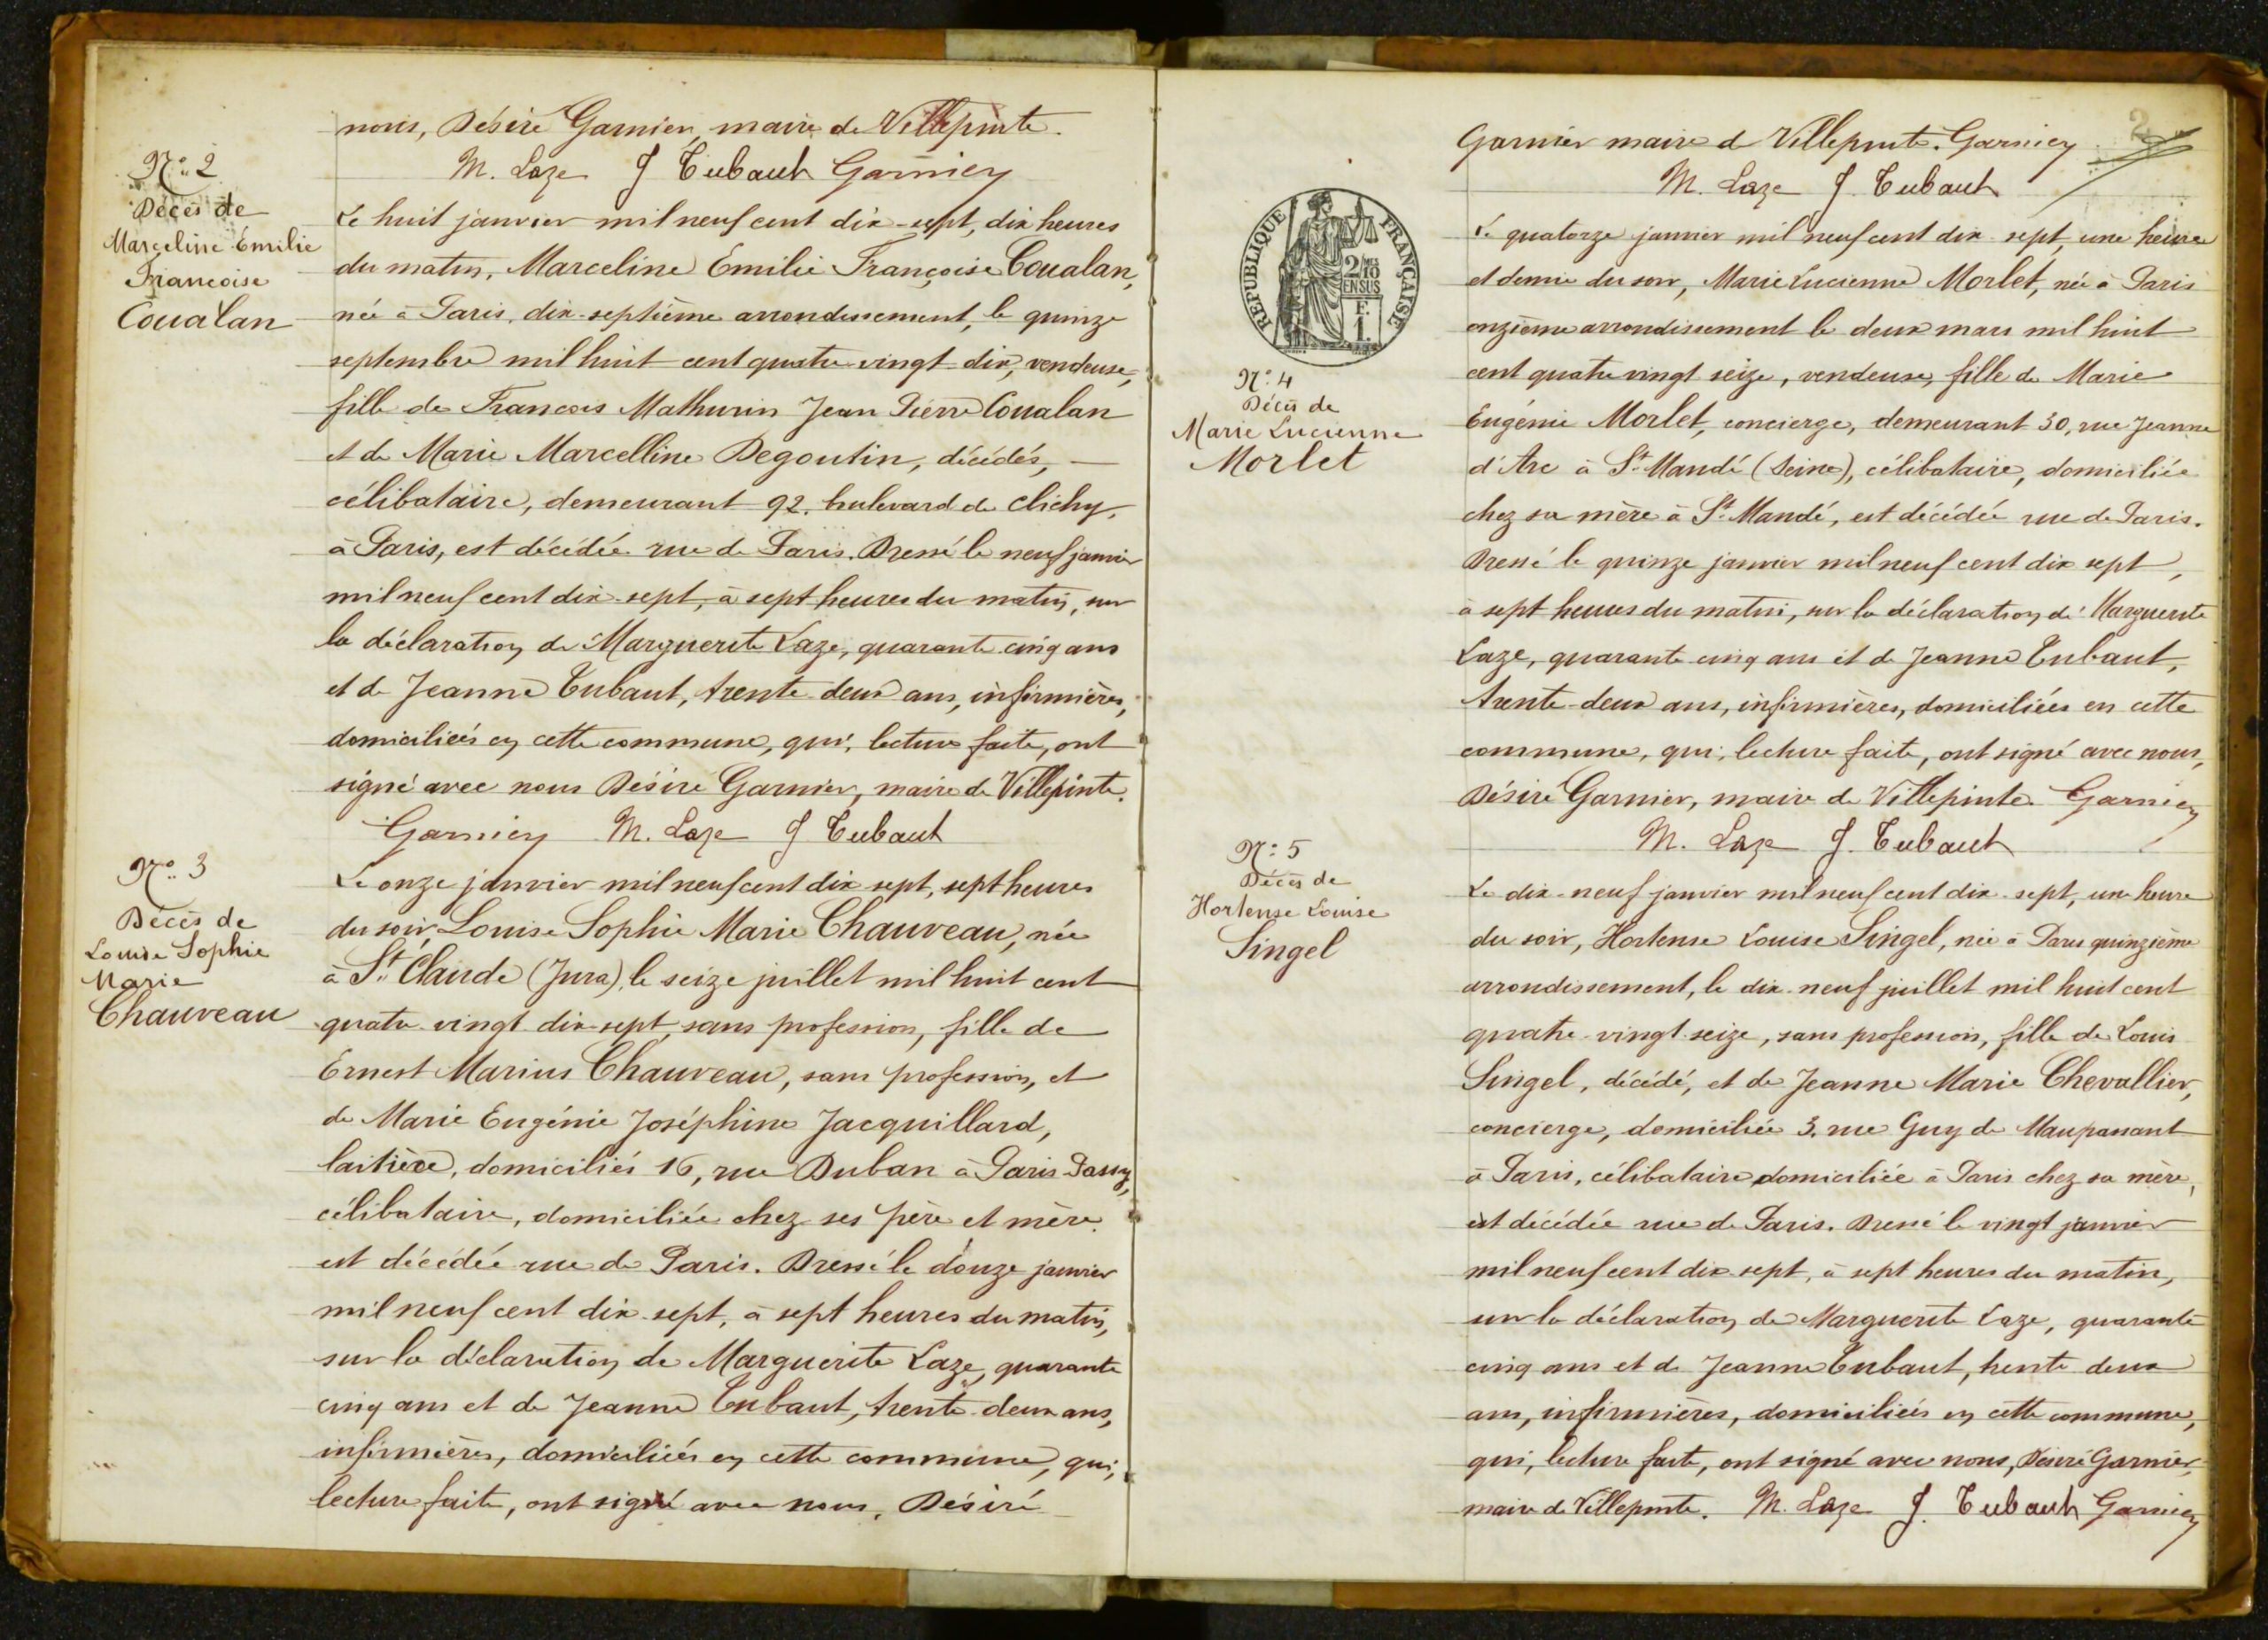 nous, Désiré Garnier, maire de Villepinte.
M. Laze J Tubaut Garnier
N° 2
Décès de
Marceline Émilie
Françoise
Coualan
Le huit janvier mil neuf cent dix-sept, dix heures
du matin, Marceline Émilie Françoise Coualan,
née à Paris, dix-septième arrondissement, le quinze
septembre mil huit cent quatre-vingt-dix, vendeuse,
fille de François Mathurin Jean Pierre Coualan
et de Marie Marcelline Degoutin, décédés, —
célibataire, demeurant 92, bulevard de Clichy,
à Paris, est décédée rue de Paris. Dressé le neuf janvier
mil neuf cent dix-sept, à sept heures du matin, sur
la déclaration de Marguerite Laze, quarante-cinq ans
et de Jeanne Tubaut, trente-deux ans, infirmières,
domiciliées en cette commune, qui, lecture faite, ont
signé avec nous Désiré Garnier, maire de Villepinte.
Garnier M. Laze J Tubaut
N° 3
Décès de
Louise Sophie
Marie
Chauveau
Le onze janvier mil neuf cent dix sept, sept heures
du soir, Louise Sophie Marie Chauveau, née
à St Claude (Jura), le seize juillet mil huit cent
quatre-vingt dix-sept, sans profession, fille de
Ernest Marius Chauveau, sans profession, et
de Marie Eugénie Joséphine Jacquillard,
laitière, domiciliés 16, rue Duban à Paris-Passy,
célibataire, domiciliée chez ses père et mère,
est décédée rue de Paris. Dressé le douze janvier
mil neuf cent dix-sept, à sept heures du matin,
sur la déclaration de Marguerite Laze, quarante
cinq ans et de Jeanne Tubaut, trente-deux ans,
infirmières, domiciliées en cette commune, qui,
lecture faite, ont signé avec nous, Désiré
2
Garnier maire de Villepinte. Garnier
M. Laze J. Tubaut
RÉPUBLIQUE FRANÇAISE
2/10 MES
EN SUS
F.
1.
N° 4
Décès de
Marie Lucienne
Morlet
Le quatorze janvier mil neuf cent dix-sept, une heure
et demie du soir, Marie Lucienne Morlet, née à Paris
onzième arrondissement le deux mars mil huit
cent quatre vingt seize, vendeuse, fille de Marie
Eugénie Morlet, concierge, demeurant 30, rue Jeanne
d'Arc à St Mandé (Seine), célibataire, domiciliée
chez sa mère à St Mandé, est décédée rue de Paris.
Dressé le quinze janvier mil neuf cent dix sept,
à sept heures du matin, sur la déclaration de Marguerite
Laze, quarante-cinq ans et de Jeanne Tubaut,
trente-deux ans, infirmières, domiciliées en cette
commune, qui, lecture faite, ont signé avec nous,
Désiré Garnier, maire de Villepinte. Garnier
M. Laze J. Tubaut
N° 5
Décès de
Hortense Louise
Singel
Le dix-neuf janvier mil neuf cent dix-sept, une heure
du soir, Hortense Louise Singel, née à Paris quinzième
arrondissement, le dix-neuf juillet mil huit cent
quatre-vingt-seize, sans profession, fille de Louis
Singel, décédé, et de Jeanne Marie Chevallier,
concierge, domiciliée 3, rue Guy de Maupassant
à Paris, célibataire domiciliée à Paris chez sa mère,
est décédée rue de Paris. Dressé le vingt janvier
mil neuf cent dix-sept, à sept heures du matin,
sur la déclaration de Marguerite Laze, quarante
cinq ans et de Jeanne Tubaut, trente deux
ans, infirmières, domiciliées en cette commune,
qui, lecture faite, ont signé avec nous, Désiré Garnier,
maire de Villepinte. M. Laze J. Tubaut Garnier